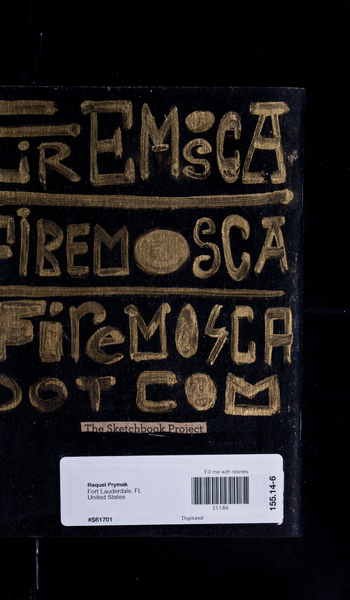 FIREMOSCA
FIBEMOSCA
FIREMOSCA
DOT COM
The Sketchbook Project
Fill me with stories
Raquel Prymak
Fort Lauderdale, FL
United States
15586
155.14-6
#S61701
Digitized